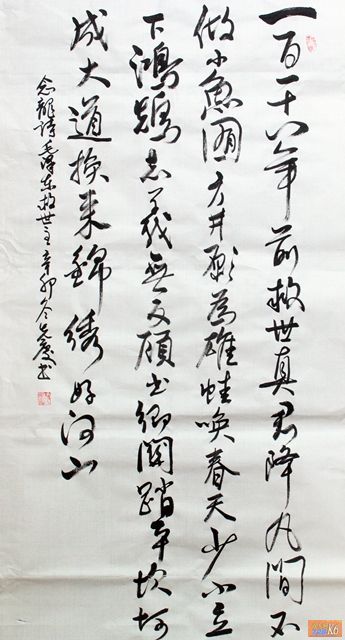 一百一十八年前救世真君降凡間不
做小魚囿方井願為雄蛙喚春天少小立
下鴻鵠志義無反顧出鄉關踏平坎坷
成大道換来錦繡好河山
念龍詩毛澤東救世主辛卯冬慶书
K6